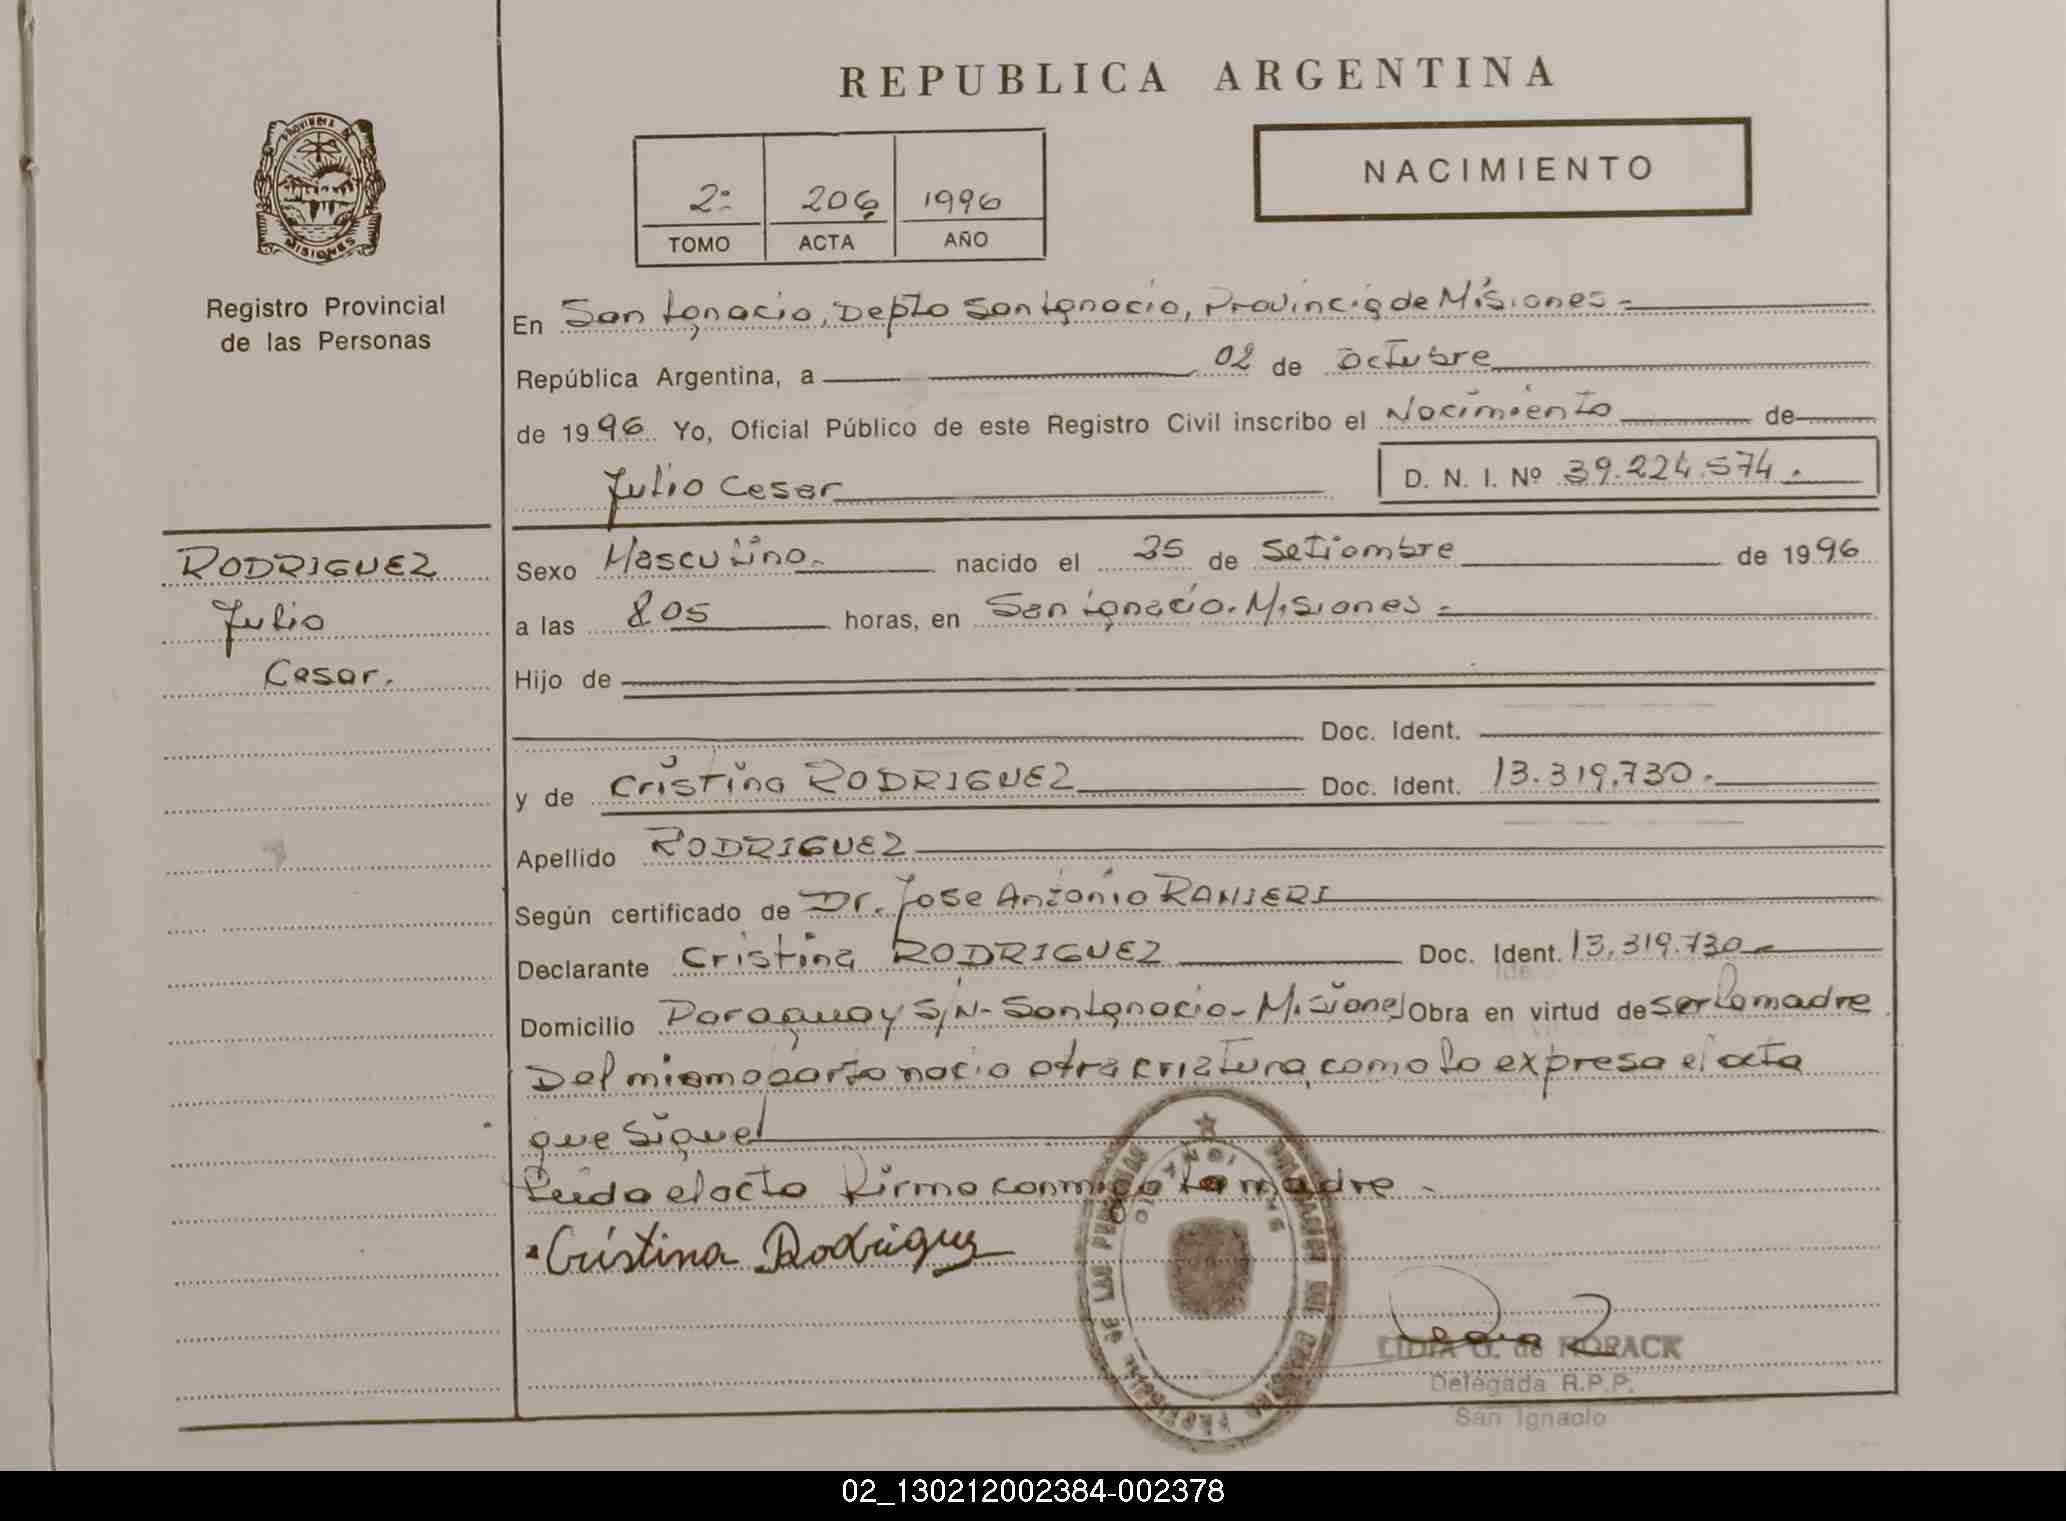 REPUBLICA ARGENTINA
PROVINCIA DE
MISIONES
Registro Provincial
de las Personas
2º 206 1996
TOMO ACTA AÑO
NACIMIENTO
En San Ignacio, Depto San Ignacio, Provincia de Misiones-
República Argentina, a 02 de octubre
de 1996 Yo, Oficial Público de este Registro Civil inscribo el Nacimiento de
Julio Cesar D. N. I. Nº 39.224.574.
RODRIGUEZ
Julio
Cesar.
Sexo Masculino. nacido el 25 de Setiembre de 1996
a las 8 05 horas, en San Ignacio. Misiones-
Hijo de
Doc. Ident.
y de Cristina RODRIGUEZ Doc. Ident. 13.319.730.
Apellido RODRIGUEZ
Según certificado de Dr. Jose Antonio RANIERI
Declarante Cristina RODRIGUEZ Doc. Ident. 13.319.730
Domicilio Paraguay S/N- San Ignacio- Misiones Obra en virtud de ser la madre
Del mismo parto nacio otra criatura, como lo expresa el acta
que sigue
Leida el acta firma conmigo la madre-
Cristina Rodriguez
REGISTRO PROVINCIAL DE LAS PERSONAS
SAN IGNACIO
LIDIA O. de HORACK
Delegada R.P.P.
San Ignacio
02_130212002384-002378